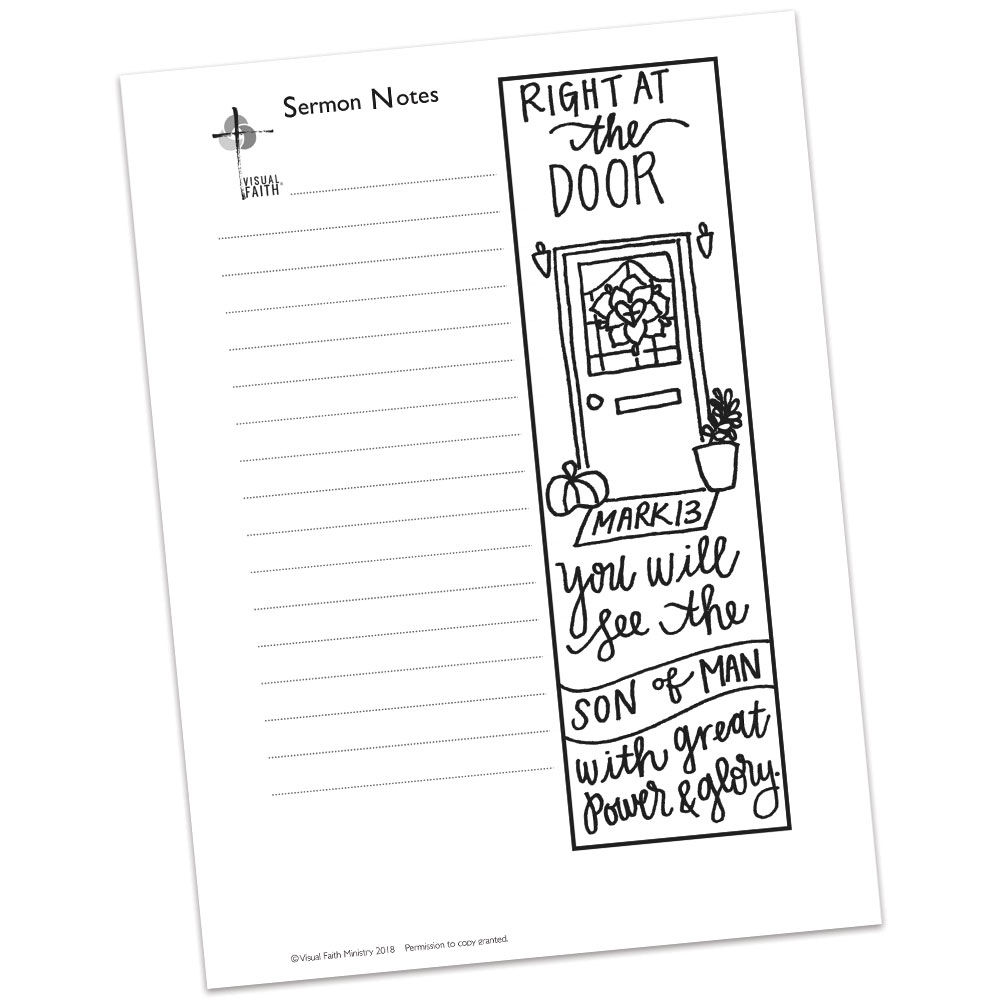 Sermon Notes
VISUAL
FAITH®
RIGHT AT
the
DOOR
MARK 13
You will
see the
SON of MAN
with great
Power & glory.
©Visual Faith Ministry 2018 Permission to copy granted.